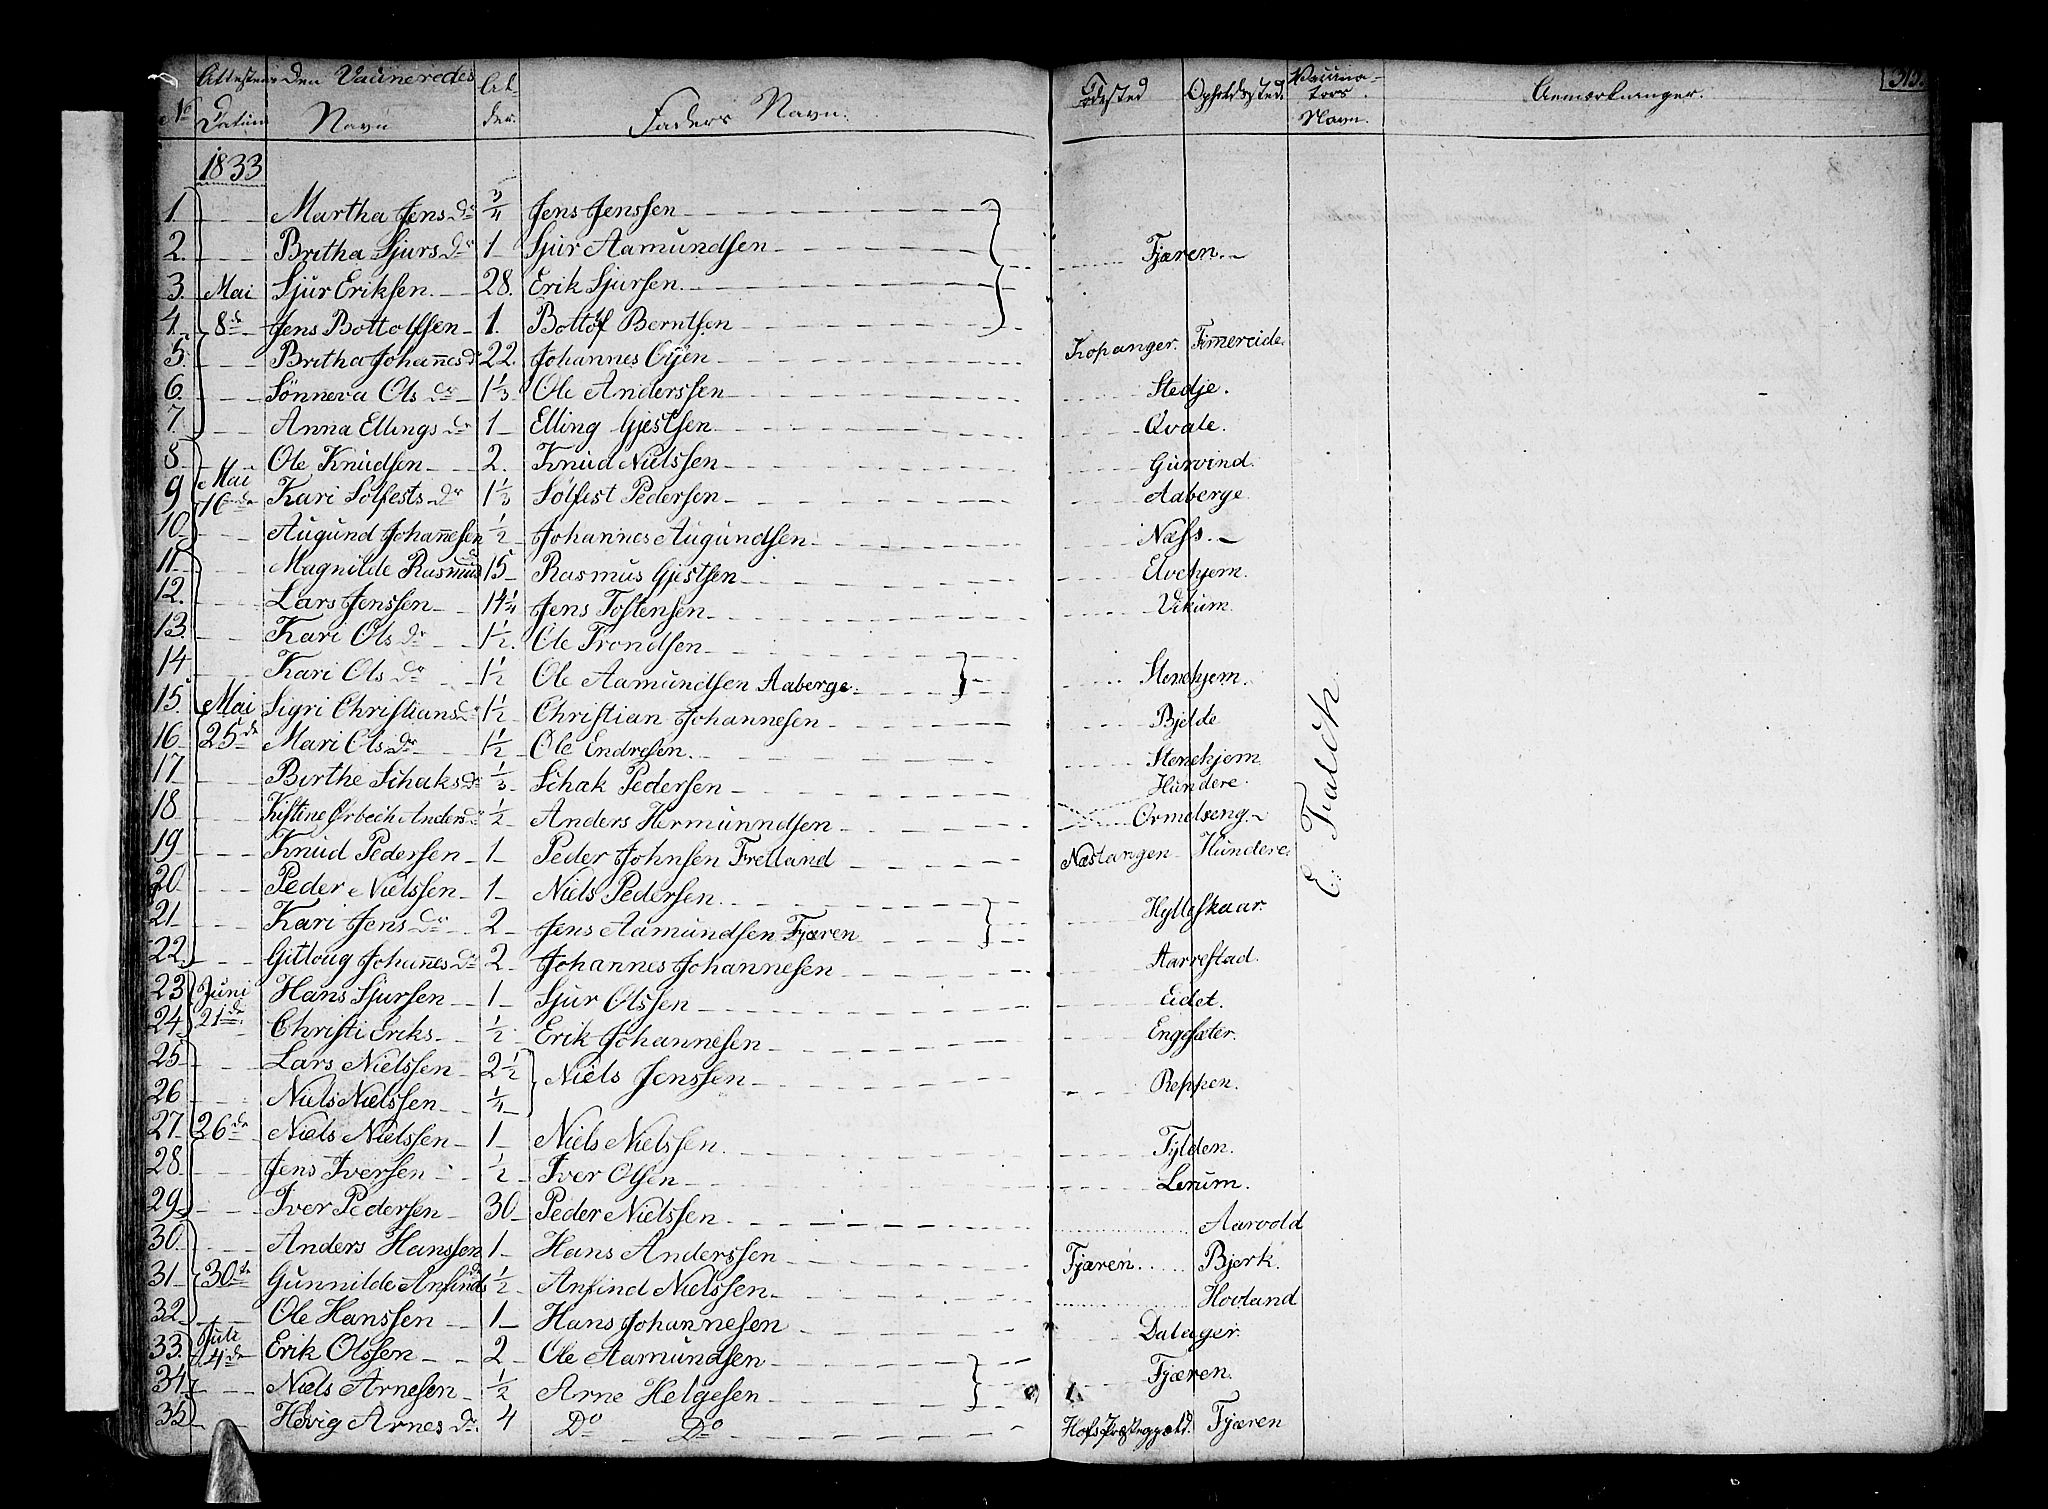 Attesten den Vaccineredes Al- Fødested Opholdssted. Vaccina- Anmærkninger. 315.
No Datum Navn der. Faders Navn. tors
Navn.
1833
1. Martha Jens Dr 3/4 Jens Jenssen
2. Britha Sjurs Dr 1 Sjur Aamundsen Fjæren.
3. Mai Sjur Eriksen. 28. Erik Sjursen
4. 8de Jens Bottolfsen 1. Bottolf Berntsen
5. Britha Johannes Dr 22. Johannes Oÿen Kopanger. Timereide.
6. Sönneva Ols Dr 1 1/3 Ole Anderssen Stedje.
7. Anna Ellings Dr 1 Elling Gjestsen Qvale.
8. Ole Knudsen 2. Knud Nielssen Gurvind.
9 Mai 16de Kari Solfests Dr 1 1/3 Solfest Pedersen Aaberge
10. Augund Johannesen 1/2 Johannes Augundsen Næss.
11. Magnilde Rasmus Dr 15 Rasmus Gjestsen Elvehjem.
12. Lars Jenssen 14 1/4 Jens Tostensen Vikum.
13. Kari Ols Dr 1 1/2. Ole Trondsen
14 Kari Ols Dr 1 1/2 Ole Aamundsen Aaberge Stenehjem.
15. Mai Sigri Christians Dr 1 1/2 Christian Johannesen Bjelde
16 25de Mari Ols Dr 1 1/2 Ole Endresen Stenehjem
17 Birthe Schaks Dr 1/3 Schak Pedersen Hundere.
18 Kistine Ørbech Anders Dr 1/2 Anders Hermunndsen Ormelseng.
19 Knud Pedersen 1 Peder Johnsen Fretland Næstangen Hundere.
20. Peder Nielssen 1 Niels Pedersen.
21 Kari Jens Dr 2 Jens Aamundsen Fjæren Hylleskaar.
22. Gitloug Johannes Dr 2 Johannes Johannesen Aarrestad.
23 Juni Hans Sjursen 1 Sjur Olssen Eidet.
24 21de Christi Eriks 1/2 Erik Johannesen Engesæter.
25 Lars Nielssen 2 1/2 Niels Jenssen Reppen.
26 Niels Nielssen 1/4
27 26de Niels Nielssen 1 Niels Nielssen. Fylden.
28 Jens Iversen 1/2 Iver Olsen Lerum.
29. Iver Pedersen 30 Peder Nielssen Aarvold
30. Anders Hanssen 1 Hans Anderssen Fjæren Bjerk.
31 30te Gunnilde Anfinds Dr 1/2 Anfind Nielssen Hovland
32 Ole Hanssen 1 Hans Johannesen Dalager.
33. Juli 4de Erik Olssen 2 Ole Aamundsen
34 Niels Arnesen 1/2 Arne Helgesen Fjæren.
35 Helvig Arnes Dr 4 Do Do Hofs Fjæren
E: Falch